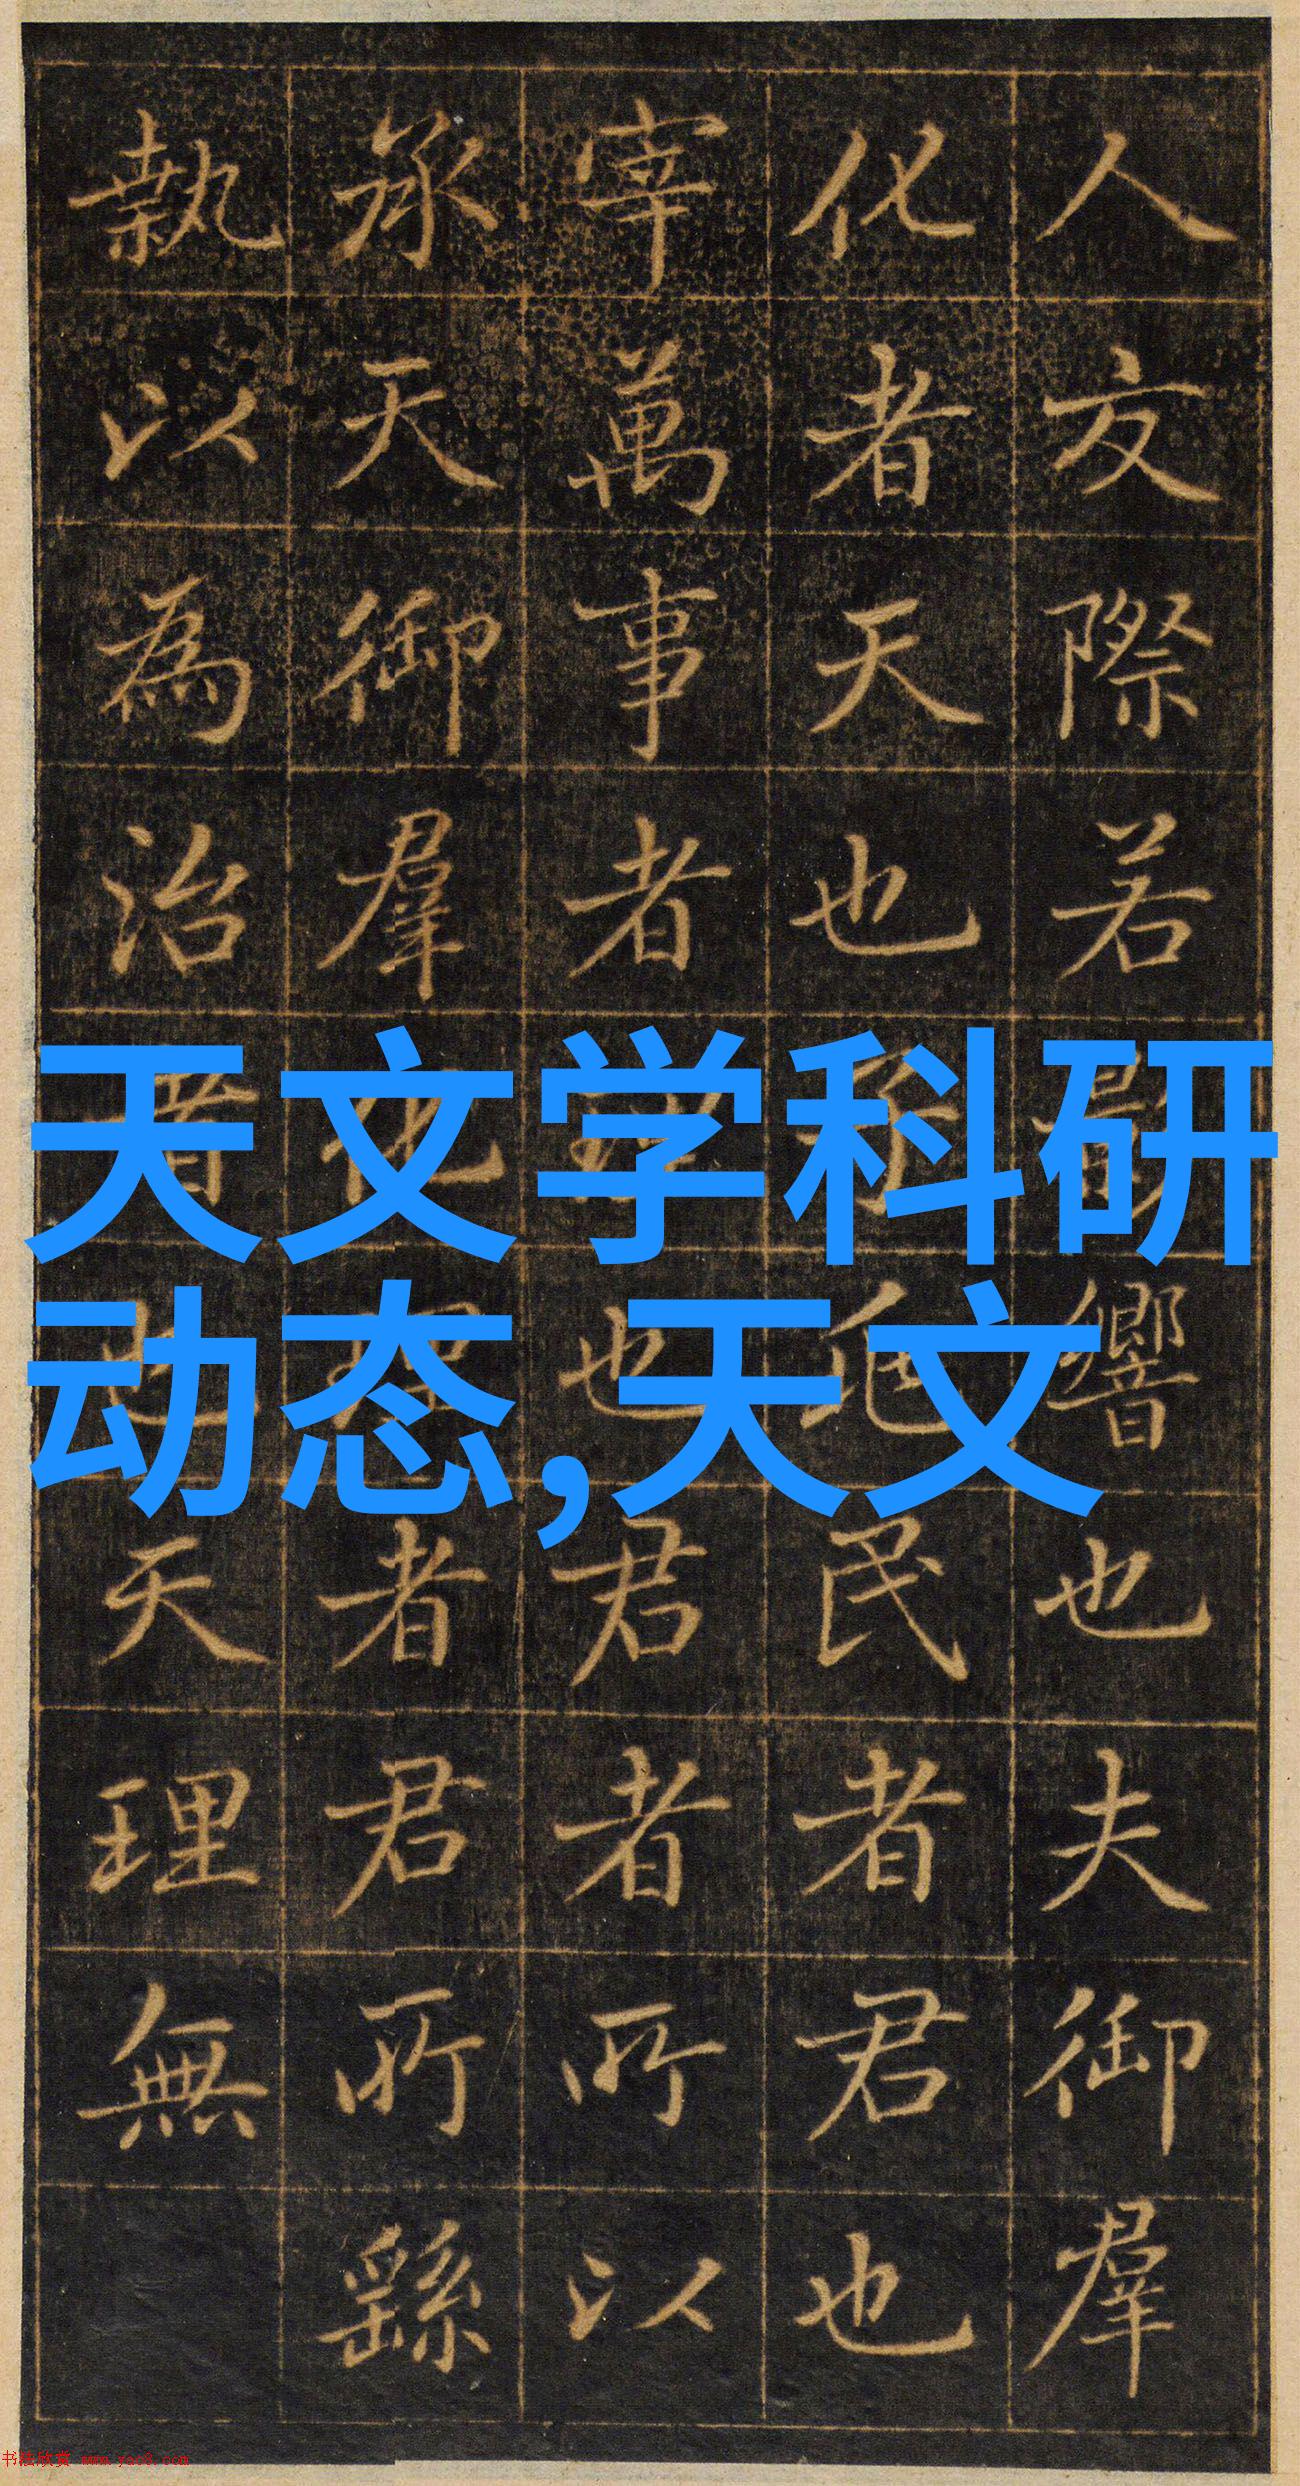 人友際若影響也夫御羣
化者天也民者君也
宰萬事者也君者所以
承天御羣者君所繇
執以為治者也天理無
天文学科研
动态,天文
书法欣赏 www.yac8.com